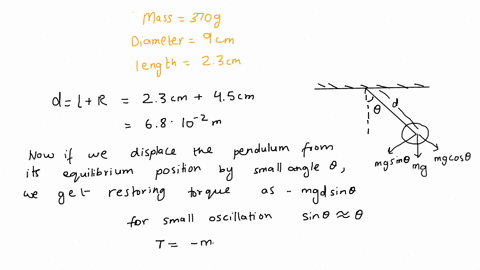 Mass = 370g
Diameter = 9cm
length = 2.3cm
d = l+R = 2.3cm + 4.5cm
= 6.8 · 10⁻² m
θ
d
mgsinθ
mg
mgcosθ
Now if we displace the pendulum from
its equilibrium position by small angle θ,
we get restoring torque as - mgdsinθ
for small oscillation sinθ ≈ θ
T = -m